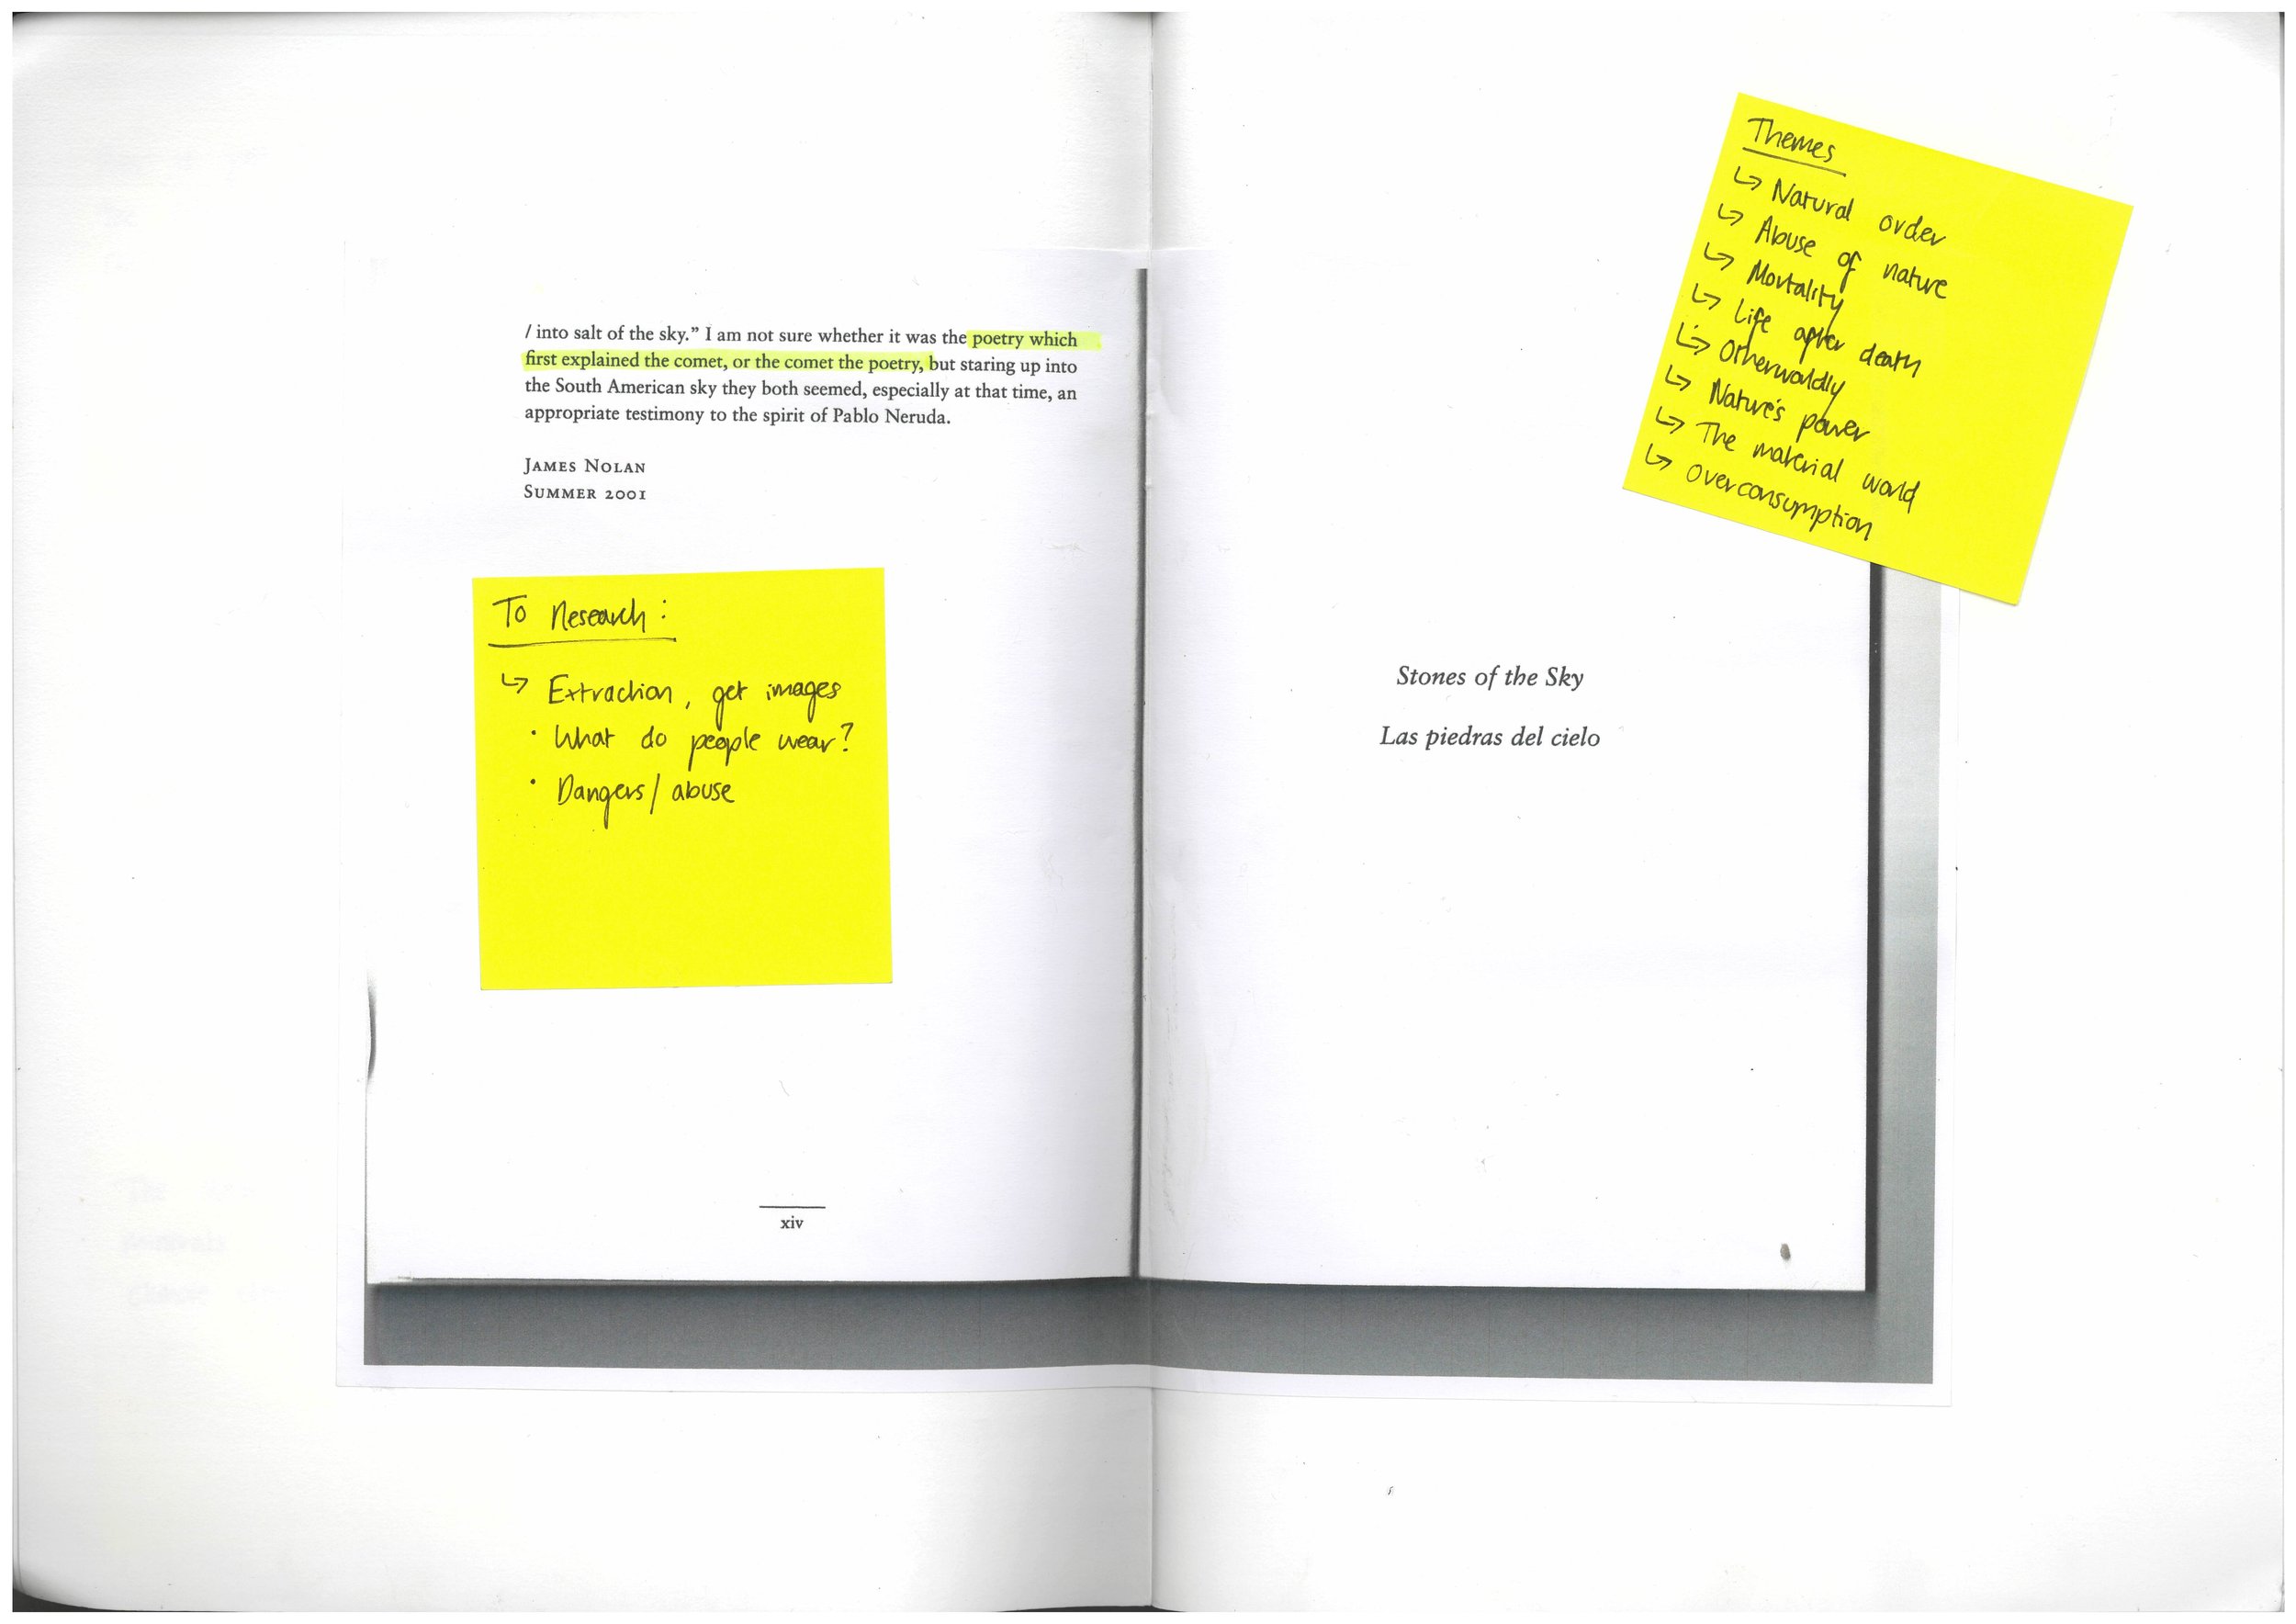 / into salt of the sky.” I am not sure whether it was the poetry which
first explained the comet, or the comet the poetry, but staring up into
the South American sky they both seemed, especially at that time, an
appropriate testimony to the spirit of Pablo Neruda.
JAMES NOLAN
SUMMER 2001
To Research:
↳ Extraction, get images
· What do people wear?
· Dangers/ abuse
xiv
Themes
↳ Natural order
↳ Abuse of nature
↳ Mortality
↳ Life after death
↳ Otherworldly
↳ Nature's power
↳ The material world
↳ overconsumption
Stones of the Sky
Las piedras del cielo